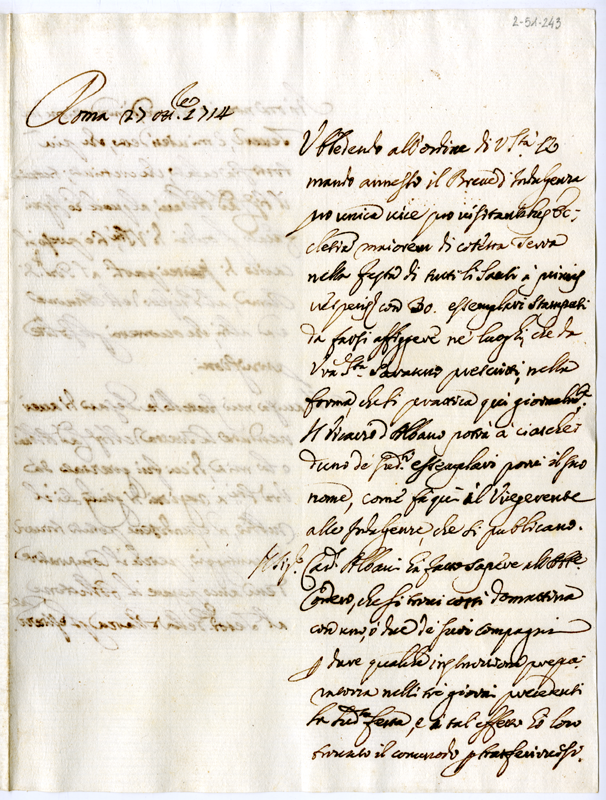 2-51-243
Roma 27 ott.bre 1714
Ubbedendo all'ordine di V. S.tà le
mando annesso il Breve d'Indulgenza
pro unica vice pro visitantibus Ec-
clesia maiorem di cotesta Terra
nella festa di tutti li Santi à primis
vesperis con 30. essemplari stampati
da farsi affiggere ne luoghi, che da
V.ra S.tà saranno prescritti, nella
forma che si prattica quì giornalm.te
Il Vicario d'Albano potrà à ciasche-
duno de sud.i essemplari porvi il suo
nome, come fà quì il Vicegerente
alle Indulgenze, che si publicano.
Il Sig.r Card. Albani hà fatto sapere all'
che si trovi costì domattina
con uno, ò due de suoi compagni
p dare qualche instruzione prepa-
ratoria nelli trè giorni precedenti
la sud.a festa, e à tal effetto hò loro
trovato il commodo p trasferirvisi.